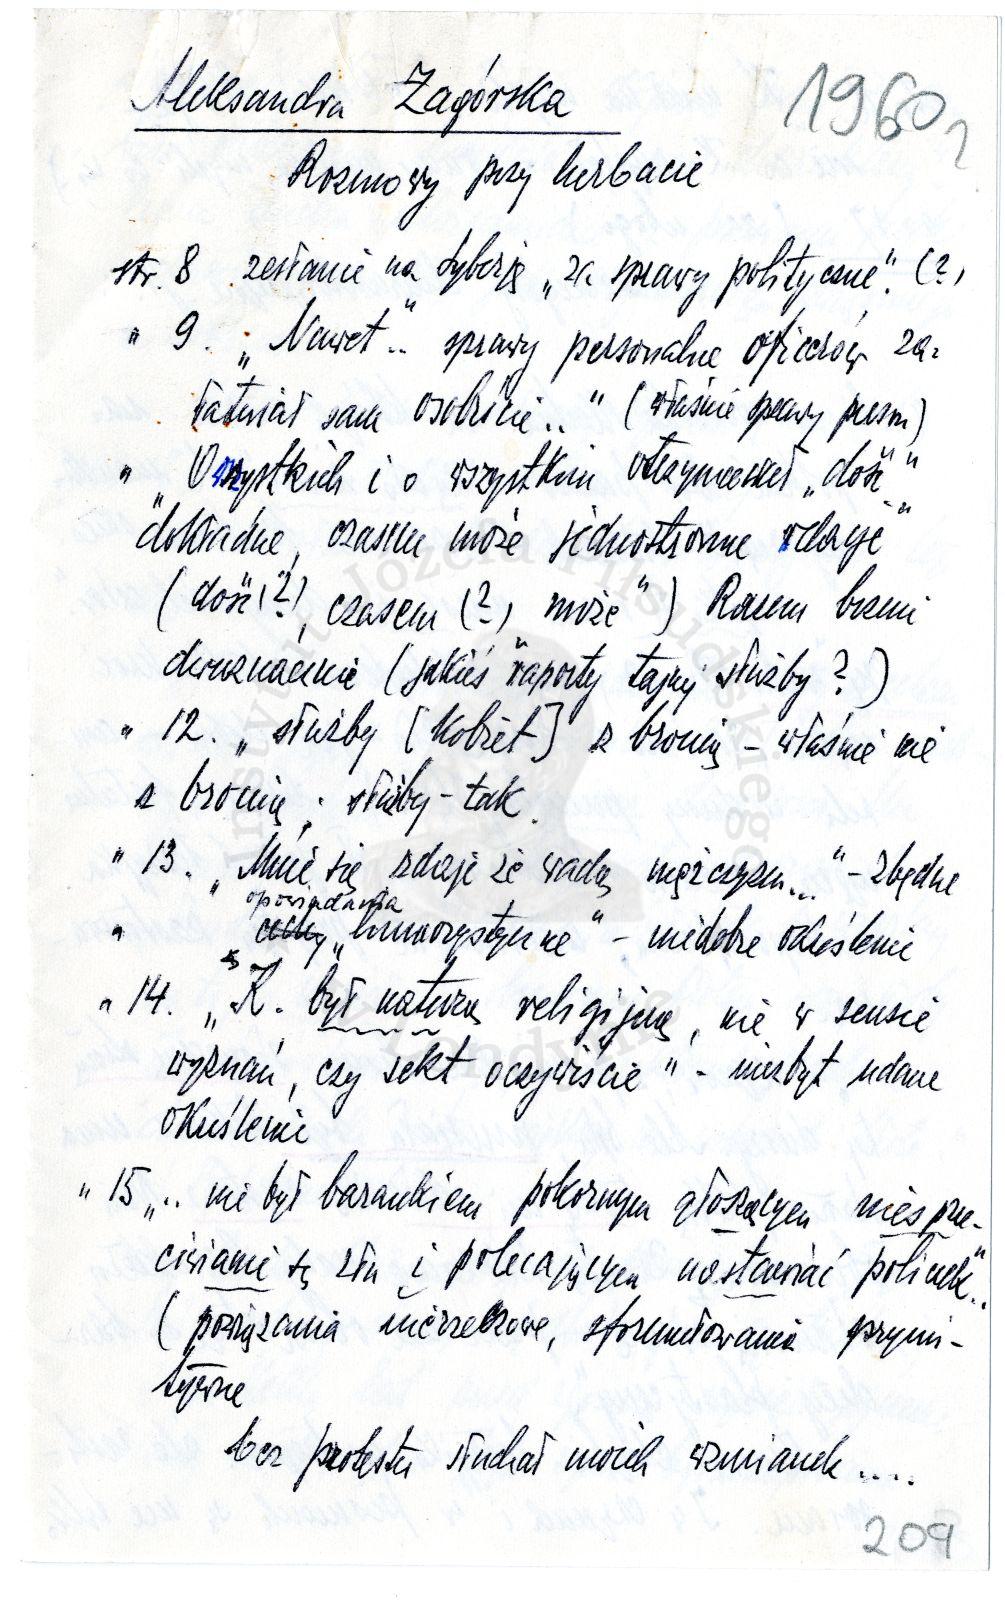 Aleksandra Zagórska
1960 r
Rozmowy przy herbacie
str. 8 zesłanie na Syberję „za sprawy polityczne". (?)
" 9. „Nawet.." sprawy personalne oficerów za-
łatwiał sam osobiście.." (właśnie sprawy person)
" „O wszystkich i o wszystkim otrzymywał „dość"
dokładne, czasem może jednostronne relacje"
(dość (?), czasem (?) może") Razem brzmi
dwuznacznie (jakieś "raporty tajnej służby?)
" 12. „służby [kobiet] z bronią – właśnie nie
z bronią; służby – tak.
" 13. „Mnie się zdaje że wadą mężczyzn..." – zbędne
opowiadania
" cechy „humorystyczne" – niedobre określenie
" 14. „K. był naturą religijną, nie w sensie
wyznań, czy sekt oczywiście" – niezbyt udane
określenie
" 15 „.. nie był barankiem pokornym głoszącym niesprze-
ciwianie się złu i polecającym nastawiać policzek"..
(powiązania nierzeczowe, sformułowania prymi-
tywne
bez protestu słuchał moich wzmianek .....
209
Instytut Józefa Piłsudskiego
w Londynie